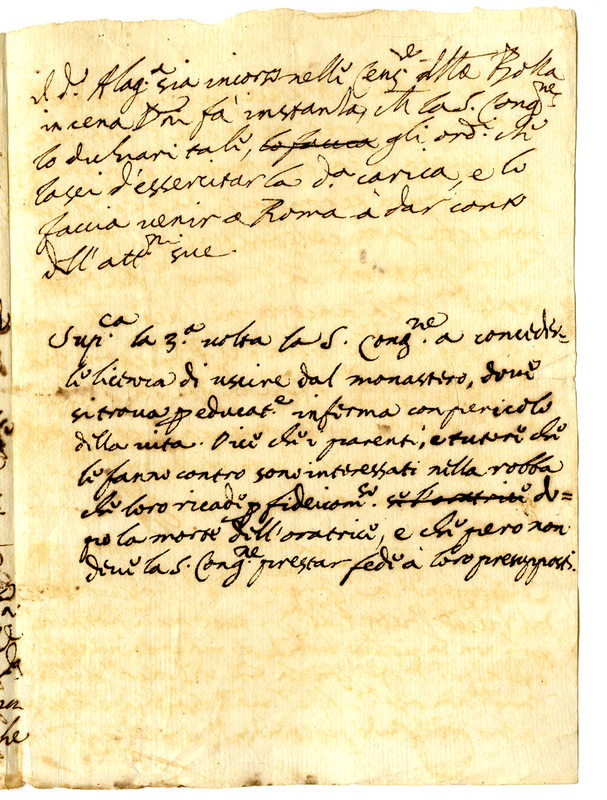 il d.º Alag.ª sia incorso nelle Cens.e della Bolla
in cena D'ni fà instanza, ch la S. Cong.ne
lo dichiari tale, lo facci gli ord.i che
lasci d'essercitar la d.ª carica, e lo
faccia venir a Roma à dar conto
dell'att.ni sue.
Sup.ca la 3.ª volta la S. Cong.ne a conceder=
le licenza di uscire dal monastero, dove
si trova p educat.e inferma con pericolo
della vita. Dice che i parenti, e tutori che
le fanno contro sono interessati nella robba
che loro ricade p fideicom.so se l'oratrice do=
po la morte dell'oratrice, e che però non
deve la S. Cong.ne prestar fede à loro presupposti.